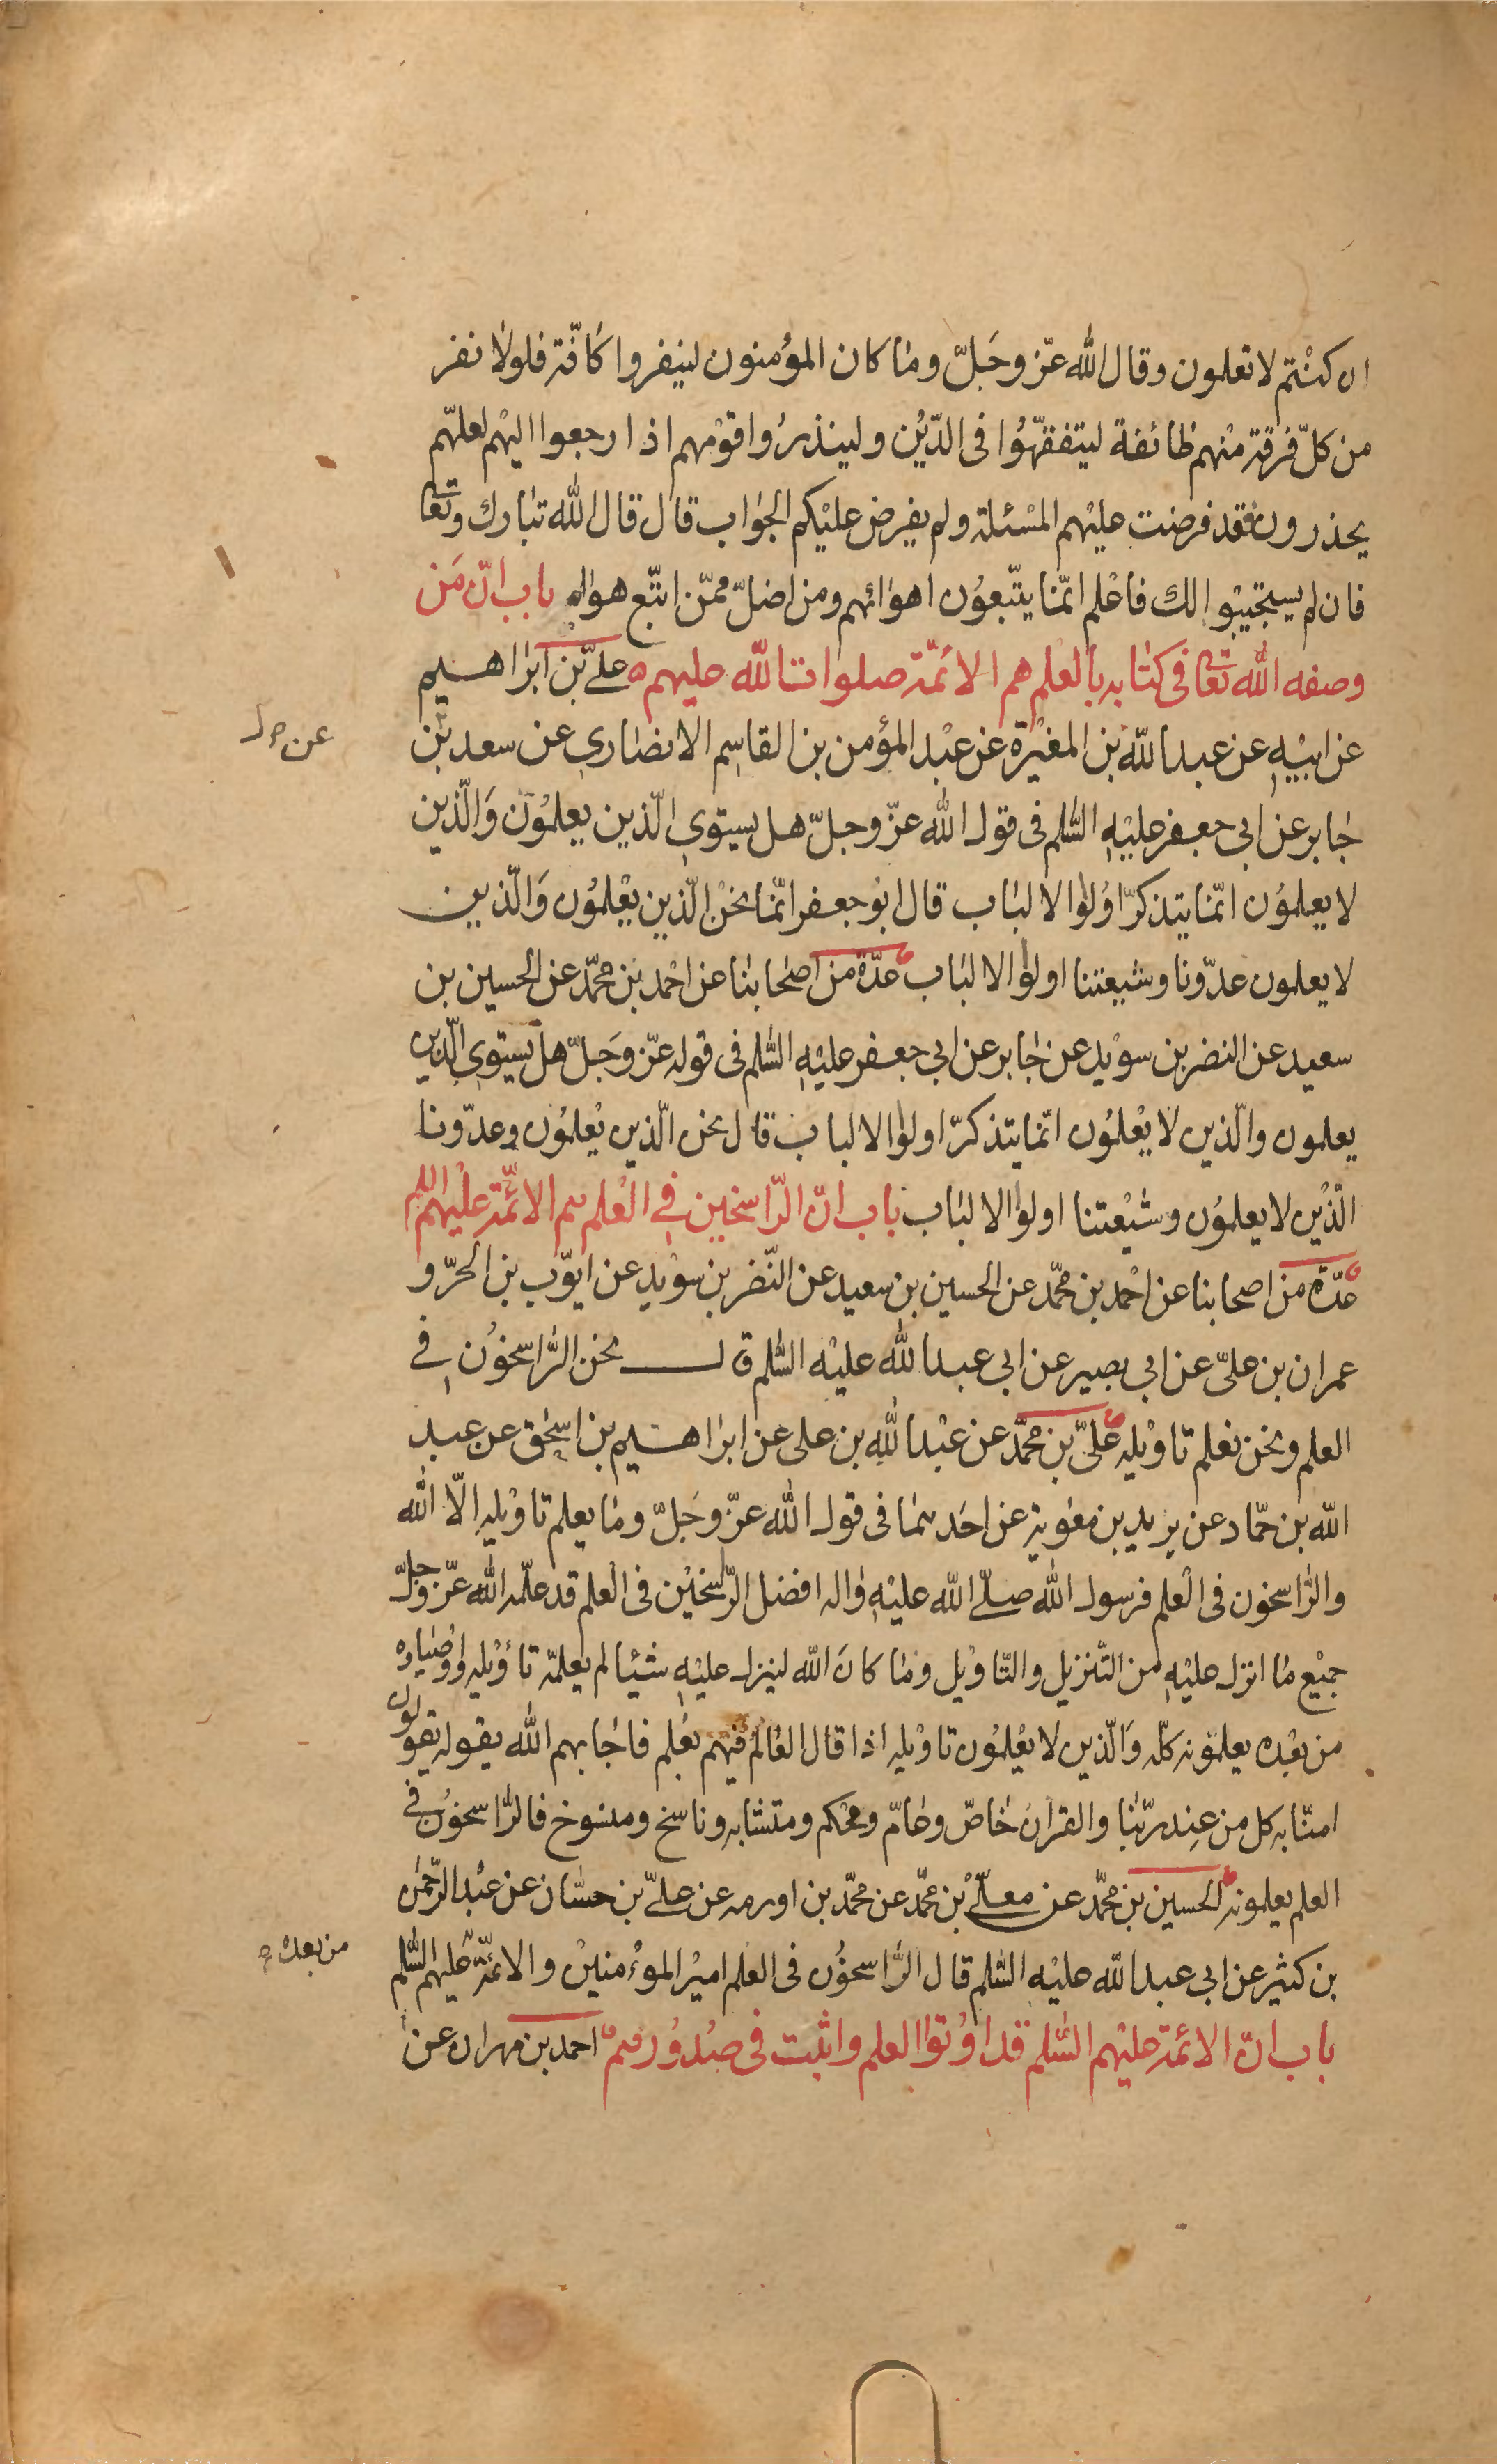 ان كنتم لا تعلمون وقال الله عزّ وجَلّ وما كان المؤمنون لينفروا كافّة فلولا نفر
من كلّ فرقة منهم طائفة ليتفقّهوا فى الدّين ولينذروا قومهم اذا رجعوا اليهم لعلّهم
يحذرون فقد فرضت عليهم المسئلة ولم يفرض عليكم الجواب قال قال الله تبارك وتعا
فان لم يستجيبوا لك فاعلم انّما يتّبعون اهوائهم ومن اضلّ ممّن اتّبع هواه باب انّ مَن
وصفه الله تعا فى كتابه بالعلم هم الائمّة صلوات الله عليهم علىّ بن ابراهيم
عن ابيه عن عبد الله بن المغيرة عن عبد المؤمن بن القاسم الانصارى عن سعد بن
عن
جابر عن ابى جعفر عليه السّلم فى قول الله عزّ وجلّ هل يستوى الّذين يعلمون وَالّذين
لا يعلمون انّما يتذكّر اولوا الالباب قال ابو جعفر انّما نحن الّذين يعلمون وَالّذين
لا يعلمون عدّونا وشيعتنا اولوا الالباب عدّة من اصحابنا عن احمد بن محمّد عن الحسين بن
سعيد عن النضر بن سويد عن جابر عن ابى جعفر عليه السّلم فى قوله عزّ وجَلّ هل يستوى الّذين
يعلمون والّذين لا يعلمون انّما يتذكّر اولوا الالباب قال نحن الّذين يعلمون وعدّونا
الّذين لا يعلمون وشيعتنا اولوا الالباب باب انّ الرّاسخين فى العلم هم الائمّة عليهم السلم
عدّة من اصحابنا عن احمد بن محمّد عن الحسين بن سعيد عن النّضر بن سويد عن ايّوب بن الحرّ و
عمران بن علىّ عن ابى بصير عن ابى عبد الله عليه السّلم قال نحن الرّاسخون فى
العلم ونحن نعلم تاويله علىّ بن محمّد عن عبد الله بن على عن ابراهيم بن اسحق عن عبد
الله بن حمّاد عن بريد بن معوية عن احَدهما فى قول الله عزّ وجَلّ وما يعلم تاويله الّا الله
والرّاسخون فى العلم فرسول الله صلّى الله عليه واله افضل الرّاسخين فى العلم قد علّمه الله عزّ وجلّ
جميع ما انزل عليه من التّنزيل والتّاويل وما كانَ الله لينزل عليه شيئا لم يعلّمه تاؤيله واوصياؤه
من بعده يعلمونه كلّه وَالّذين لا يعلمون تاويله اذا قال العالم فيهم بعلم فاجابهم الله بقوله يقولون
امنّا به كل من عند ربّنا والقران خاصّ وعامّ ومحكم ومتشابه وناسخ ومنسوخ فالرّاسخون فى
العلم يعلمونه الحسين بن محمّد عن معلّى بن محمّد عن محمّد بن اورمه عن علىّ بن حسّان عن عبد الرّحمن
بن كثير عن ابى عبد الله عليه السّلم قال الرّاسخون فى العلم امير المؤمنين والائمّة عليهم السّلم
من بعده
باب انّ الائمّة عليهم السّلم قد اوتوا العلم واثبت فى صدورهم احمد بن مهران عن